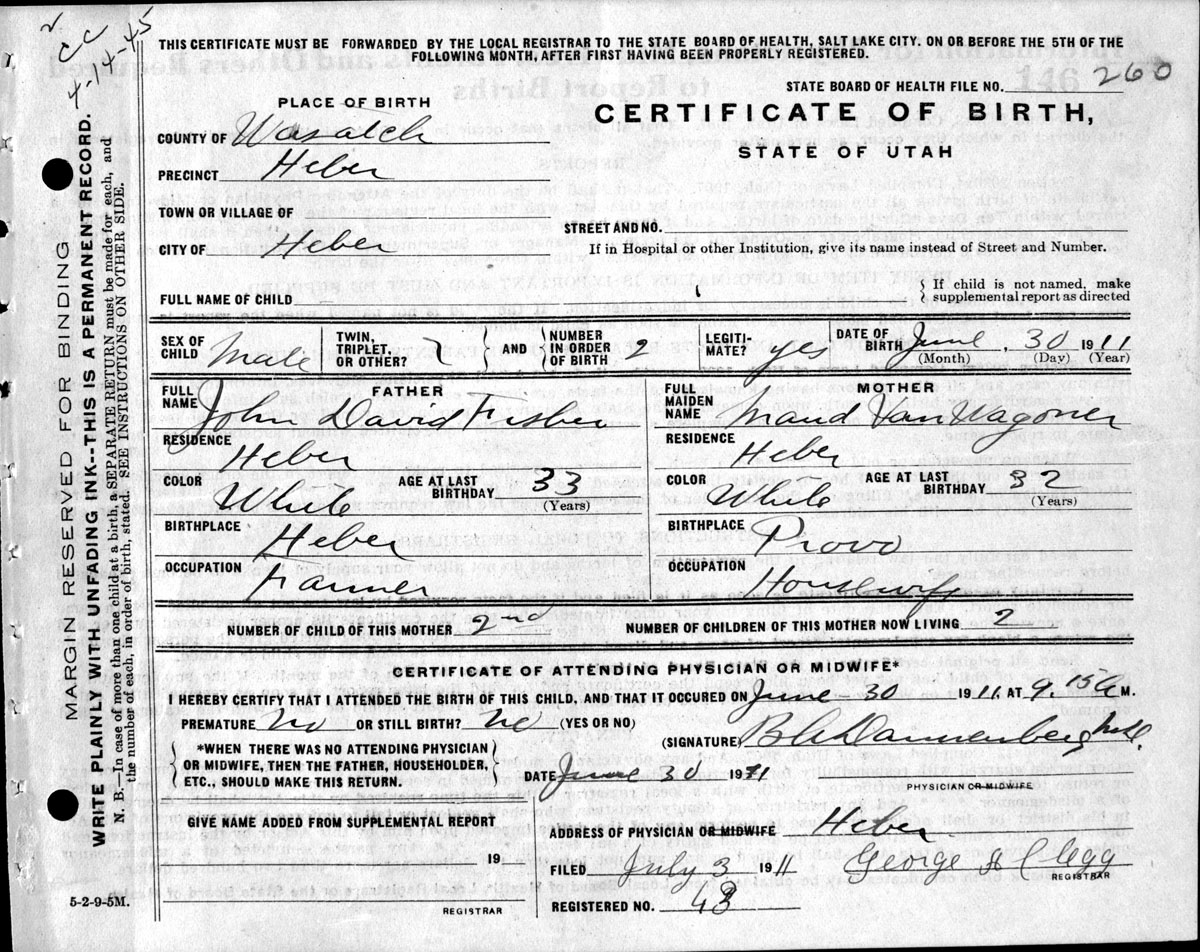 CC
4-14-45
THIS CERTIFICATE MUST BE FORWARDED BY THE LOCAL REGISTRAR TO THE STATE BOARD OF HEALTH, SALT LAKE CITY. ON OR BEFORE THE 5TH OF THE
FOLLOWING MONTH, AFTER FIRST HAVING BEEN PROPERLY REGISTERED.
STATE BOARD OF HEALTH FILE NO. 260
CERTIFICATE OF BIRTH,
STATE OF UTAH
PLACE OF BIRTH
COUNTY OF Wasatch
PRECINCT Heber
TOWN OR VILLAGE OF
STREET AND NO.
CITY OF Heber
If in Hospital or other Institution, give its name instead of Street and Number.
FULL NAME OF CHILD
{ If child is not named, make
supplemental report as directed
SEX OF CHILD Male TWIN, TRIPLET, OR OTHER? } AND { NUMBER IN ORDER OF BIRTH 2 LEGITI-MATE? yes DATE OF BIRTH June 30 1911
(Month) (Day) (Year)
FATHER
FULL NAME John David Fisher
RESIDENCE Heber
COLOR White AGE AT LAST BIRTHDAY 33
(Years)
BIRTHPLACE Heber
OCCUPATION Farmer
MOTHER
FULL MAIDEN NAME Maud VanWagoner
RESIDENCE Heber
COLOR White AGE AT LAST BIRTHDAY 32
(Years)
BIRTHPLACE Provo
OCCUPATION Housewife
NUMBER OF CHILD OF THIS MOTHER 2nd NUMBER OF CHILDREN OF THIS MOTHER NOW LIVING 2
CERTIFICATE OF ATTENDING PHYSICIAN OR MIDWIFE*
I HEREBY CERTIFY THAT I ATTENDED THE BIRTH OF THIS CHILD, AND THAT IT OCCURED ON June - 30 1911. AT 9.15 A M.
PREMATURE No OR STILL BIRTH? No (YES OR NO)
(SIGNATURE) Dannenberg
*WHEN THERE WAS NO ATTENDING PHYSICIAN
OR MIDWIFE, THEN THE FATHER, HOUSEHOLDER,
ETC., SHOULD MAKE THIS RETURN.
DATE June 30 1911
PHYSICIAN OR MIDWIFE
GIVE NAME ADDED FROM SUPPLEMENTAL REPORT
19
REGISTRAR
ADDRESS OF PHYSICIAN OR MIDWIFE Heber
FILED July 3 1911 George H Clegg
REGISTRAR
REGISTERED NO. 43
5-2-9-5M.
MARGIN RESERVED FOR BINDING
WRITE PLAINLY WITH UNFADING INK--THIS IS A PERMANENT RECORD.
N. B.—In case of more than one child at a birth, a SEPARATE RETURN must be made for each, and
the number of each, in order of birth, stated. SEE INSTRUCTIONS ON OTHER SIDE.